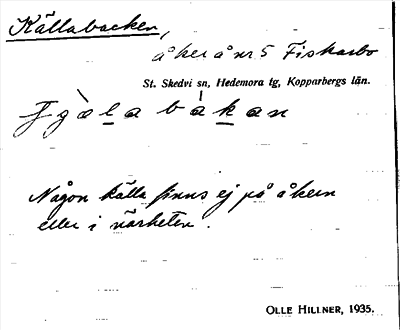 Källabacken,
åker å nr 5 Fiskarbo
St. Skedvi sn, Hedemora tg, Kopparbergs län.
Någon källa finns ej på åkern
eller i närheten.
OLLE HILLNER, 1935.